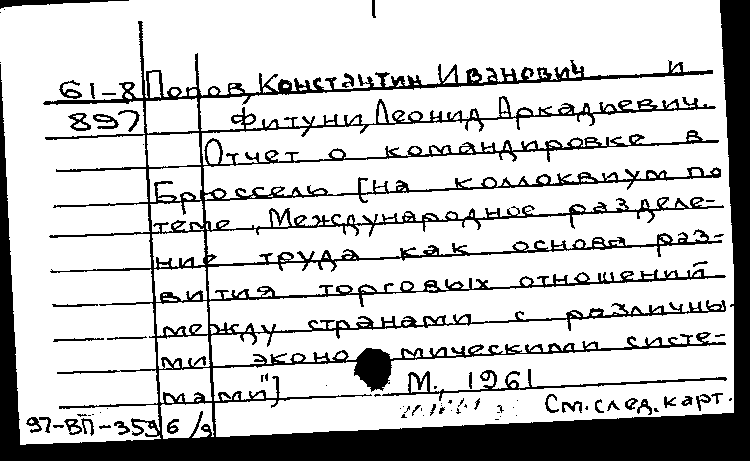 61-8 Попов, Константин Иванович и
897 Фитуни, Леонид Аркадьевич.
Отчет о командировке в
Брюссель [на коллоквиум по
теме „Международное разделе-
ние труда как основа раз-
вития торговых отношений
между странами с различны-
ми экономическими систе-
мами"] М., 1961
См. след. карт.
97-ВП-3596/9